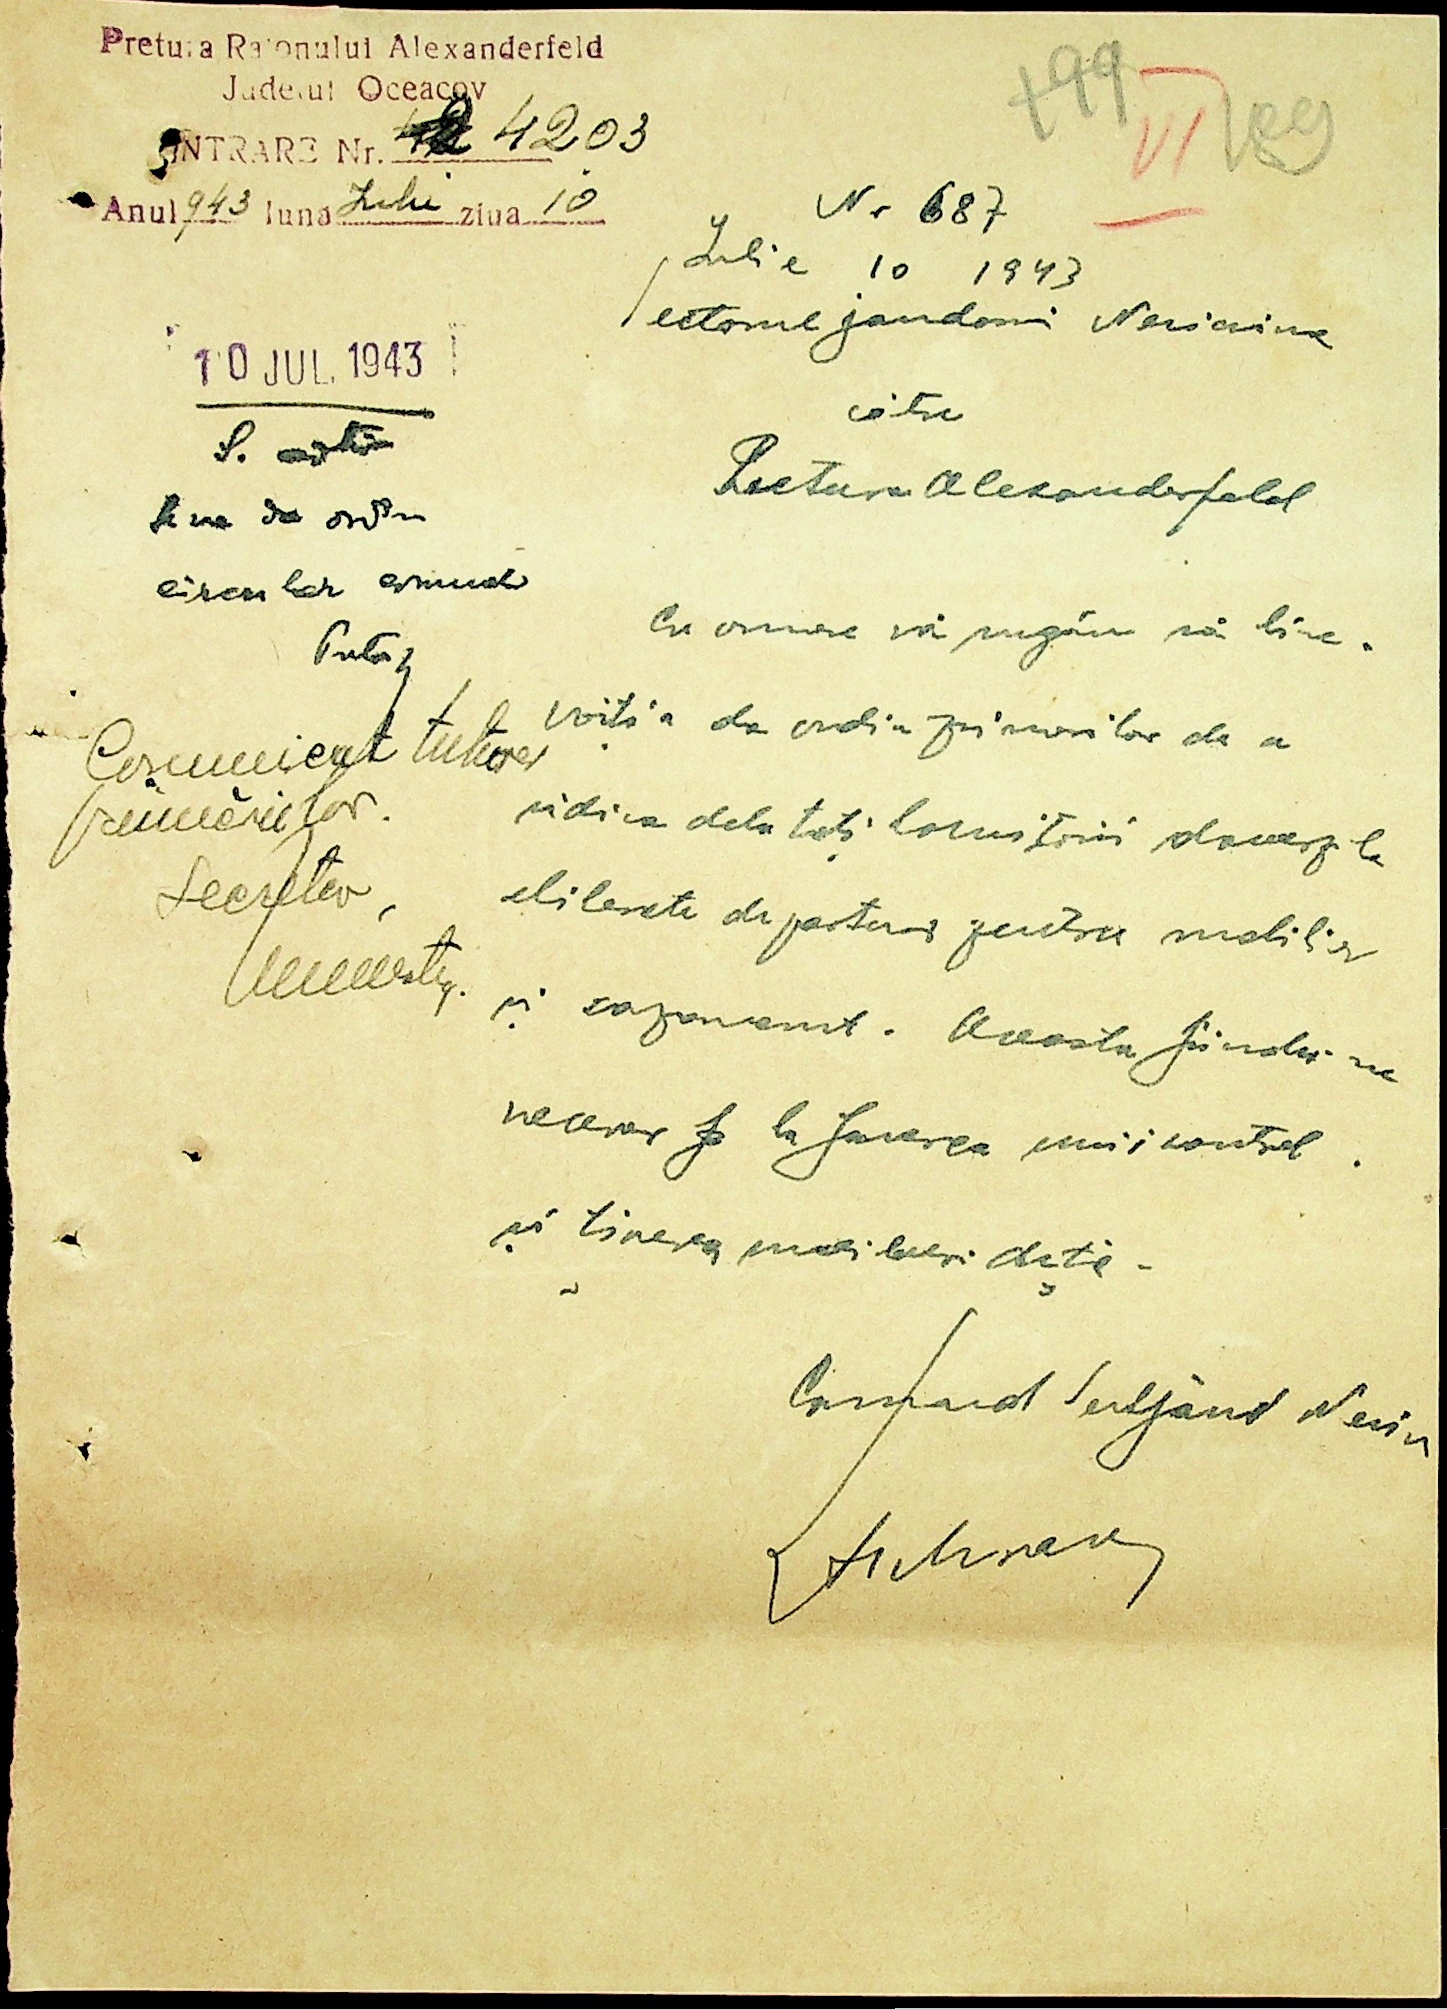 Pretura Raionului Alexanderfeld
Judetul Oceacov
INTRARE Nr. 4203
Anul 943 luna Iulie ziua 10
Nr 687
Iulie 10 1943
Sectorul jandarmi
către
Pretura Alexanderfeld
10 JUL. 1943
Se va da ordin
circular comunelor
Pretor
Comunicat tuturor
primăriilor.
Secretar,
Cu onoare vă rugăm să bine-
voiți a da ordin primarilor de a
ridica dela toți locuitorii dovezile
eliberate de posturi pentru mobilier
și Aceasta fiindu-ne
necesar la facerea unui control
și tinerea unei evidențe.
Comand